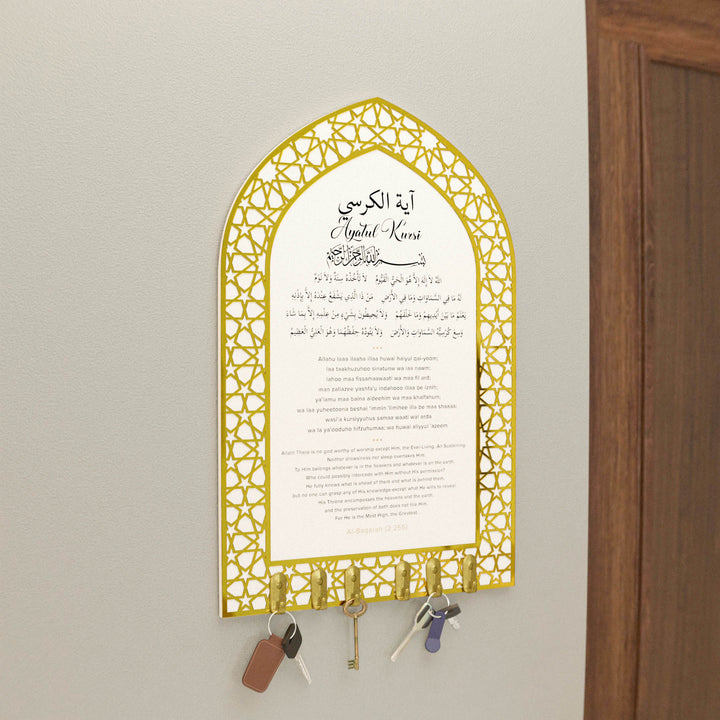 آية الكرسي
Ayatul Kursi
بسم الله الرحمن الرحيم
اللَّهُ لاَ إِلَهَ إِلاَّ هُوَ الْحَيُّ الْقَيُّومُ لاَ تَأْخُذُهُ سِنَةٌ وَلاَ نَوْمٌ
لَهُ مَا فِي السَّمَاوَاتِ وَمَا فِي الأَرْضِ مَنْ ذَا الَّذِي يَشْفَعُ عِنْدَهُ إِلاَّ بِإِذْنِهِ
يَعْلَمُ مَا بَيْنَ أَيْدِيهِمْ وَمَا خَلْفَهُمْ وَلاَ يُحِيطُونَ بِشَيْءٍ مِنْ عِلْمِهِ إِلاَّ بِمَا شَاءَ
وَسِعَ كُرْسِيُّهُ السَّمَاوَاتِ وَالأَرْضَ وَلاَ يَئُودُهُ حِفْظُهُمَا وَهُوَ الْعَلِيُّ الْعَظِيمُ
Allahu laaa ilaaha illaa huwal haiyul qai-yoom;
laa taakhuzuhoo sinatunw wa laa nawm;
lahoo maa fissamaawaati wa maa fil ard;
man zallazee yashfa'u indahooo illaa be iznih;
ya'lamu maa baina aideehim wa maa khalfahum;
wa laa yuheetoona beshai 'immin 'ilmihee illa be maa shaaaa;
wasi'a kursiyyuhus samaa waati wal arda
wa la ya'ooduho hifzuhumaa; wa huwal aliyyul 'azeem
Allah! There is no god worthy of worship except Him, the Ever-Living, All-Sustaining.
Neither drowsiness nor sleep overtakes Him.
To Him belongs whatever is in the heavens and whatever is on the earth.
Who could possibly intercede with Him without His permission?
He fully knows what is ahead of them and what is behind them,
but no one can grasp any of His knowledge except what He wills to reveal.
His Throne encompasses the heavens and the earth,
and the preservation of both does not tire Him.
For He is the Most High, the Greatest.
Al-Baqarah (2:255)